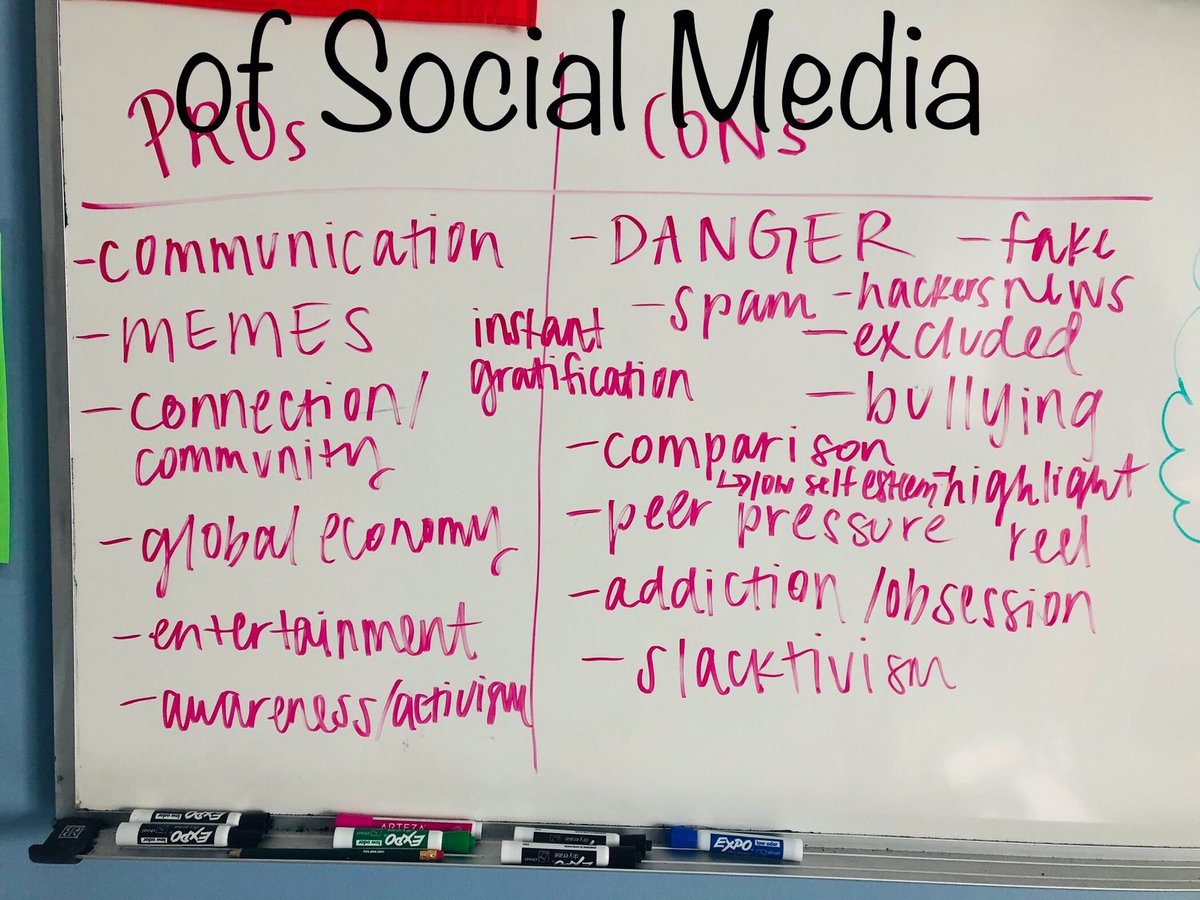 of Social Media
PROs
CONs
-communication
-MEMES
-connection/
community
-global economy
-entertainment
-awareness/activism
instant
gratification
-DANGER
-fake
news
-spam
-hackers
-excluded
-bullying
-comparison
↳low self esteem
-highlight
reel
-peer pressure
-addiction/obsession
-slacktivism
EXPO
low odor
EXPO
low odor
ARTEZA
EXPO
low odor
dry erase
EXPO
low odor